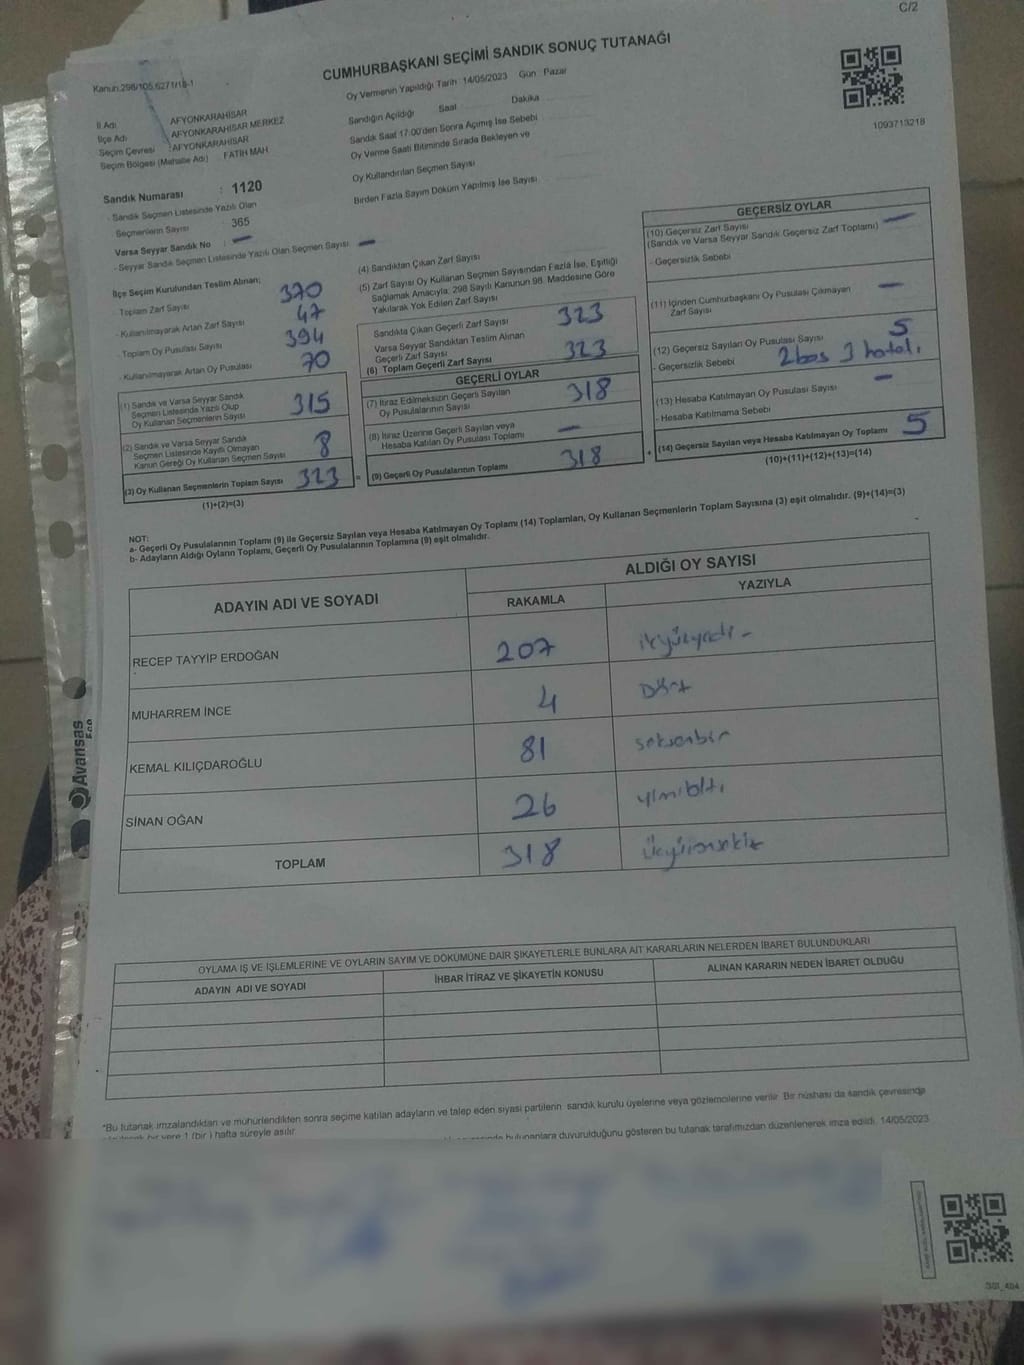 C/2
CUMHURBAŞKANI SEÇİMİ SANDIK SONUÇ TUTANAĞI
Kanun:298/105,6271/18-1
Oy Vermenin Yapıldığı Tarih 14/05/2023 Gün Pazar
Sandığın Açıldığı Saat Dakika
Sandık Saat 17:00'den Sonra Açımış İse Sebebi
Oy Verme Saati Bitiminde Sırada Bekleyen ve
Oy Kullandırılan Seçmen Sayısı
Birden Fazla Sayım Döküm Yapılmış İse Sayısı
1093713218
İl Adı : AFYONKARAHİSAR
İlçe Adı : AFYONKARAHİSAR MERKEZ
Seçim Çevresi : AFYONKARAHİSAR
Seçim Bölgesi (Mahalle Adı) FATİH MAH
Sandık Numarası : 1120
- Sandık Seçmen Listesinde Yazılı Olan
Seçmenlerin Sayısı 365
Varsa Seyyar Sandık No : –
- Seyyar Sandık Seçmen Listesinde Yazılı Olan Seçmen Sayısı –
İlçe Seçim Kurulundan Teslim Alınan;
- Toplam Zarf Sayısı 370
- Kullanılmayarak Artan Zarf Sayısı 47
- Toplam Oy Pusulası Sayısı 394
- Kullanılmayarak Artan Oy Pusulası 70
(1) Sandık ve Varsa Seyyar Sandık
Seçmen Listesinde Yazılı Olup
Oy Kullanan Seçmenlerin Sayısı 315
(2) Sandık ve Varsa Seyyar Sandık
Seçmen Listesinde Kayıtlı Olmayan
Kanun Gereği Oy Kullanan Seçmen Sayısı 8
(3) Oy Kullanan Seçmenlerin Toplam Sayısı 323
(1)+(2)=(3)
(4) Sandıktan Çıkan Zarf Sayısı
(5) Zarf Sayısı Oy Kullanan Seçmen Sayısından Fazla İse, Eşitliği
Sağlamak Amacıyla, 298 Sayılı Kanunun 98. Maddesine Göre
Yakılarak Yok Edilen Zarf Sayısı
Sandıkta Çıkan Geçerli Zarf Sayısı 323
Varsa Seyyar Sandıktan Teslim Alınan
Geçerli Zarf Sayısı
(6) Toplam Geçerli Zarf Sayısı 323
GEÇERLİ OYLAR
(7) İtiraz Edilmeksizin Geçerli Sayılan
Oy Pusulalarının Sayısı 318
(8) İtiraz Üzerine Geçerli Sayılan veya
Hesaba Katılan Oy Pusulası Toplamı –
= (9) Geçerli Oy Pusulalarının Toplamı 318
GEÇERSİZ OYLAR
(10) Geçersiz Zarf Sayısı –
(Sandık ve Varsa Seyyar Sandık Geçersiz Zarf Toplamı)
- Geçersizlik Sebebi
(11) İçinden Cumhurbaşkanı Oy Pusulası Çıkmayan
Zarf Sayısı –
(12) Geçersiz Sayılan Oy Pusulası Sayısı 5
- Geçersizlik Sebebi 2 boş 3 hatalı
(13) Hesaba Katılmayan Oy Pusulası Sayısı –
- Hesaba Katılmama Sebebi
+ (14) Geçersiz Sayılan veya Hesaba Katılmayan Oy Toplamı 5
(10)+(11)+(12)+(13)=(14)
NOT:
a- Geçerli Oy Pusulalarının Toplamı (9) ile Geçersiz Sayılan veya Hesaba Katılmayan Oy Toplamı (14) Toplamları, Oy Kullanan Seçmenlerin Toplam Sayısına (3) eşit olmalıdır. (9)+(14)=(3)
b- Adayların Aldığı Oyların Toplamı, Geçerli Oy Pusulalarının Toplamına (9) eşit olmalıdır.
ADAYIN ADI VE SOYADI
ALDIĞI OY SAYISI
RAKAMLA YAZIYLA
RECEP TAYYİP ERDOĞAN 207 ikiyüzyedi
MUHARREM İNCE 4 Dört
KEMAL KILIÇDAROĞLU 81 seksenbir
SİNAN OĞAN 26 yirmialtı
TOPLAM 318 üçyüzonsekiz
Avansas
Eco
OYLAMA İŞ VE İŞLEMLERİNE VE OYLARIN SAYIM VE DÖKÜMÜNE DAİR ŞİKAYETLERLE BUNLARA AİT KARARLARIN NELERDEN İBARET BULUNDUKLARI
ADAYIN ADI VE SOYADI İHBAR İTİRAZ VE ŞİKAYETİN KONUSU ALINAN KARARIN NEDEN İBARET OLDUĞU
*Bu tutanak imzalandıktan ve mühürlendikten sonra seçime katılan adayların ve talep eden siyasi partilerin sandık kurulu üyelerine veya gözlemcilerine verilir. Bir nüshası da sandık çevresinde
bir yere 1 (bir ) hafta süreyle asılır.
bulunanlara duyurulduğunu gösteren bu tutanak tarafımızdan düzenlenerek imza edildi. 14/05/2023